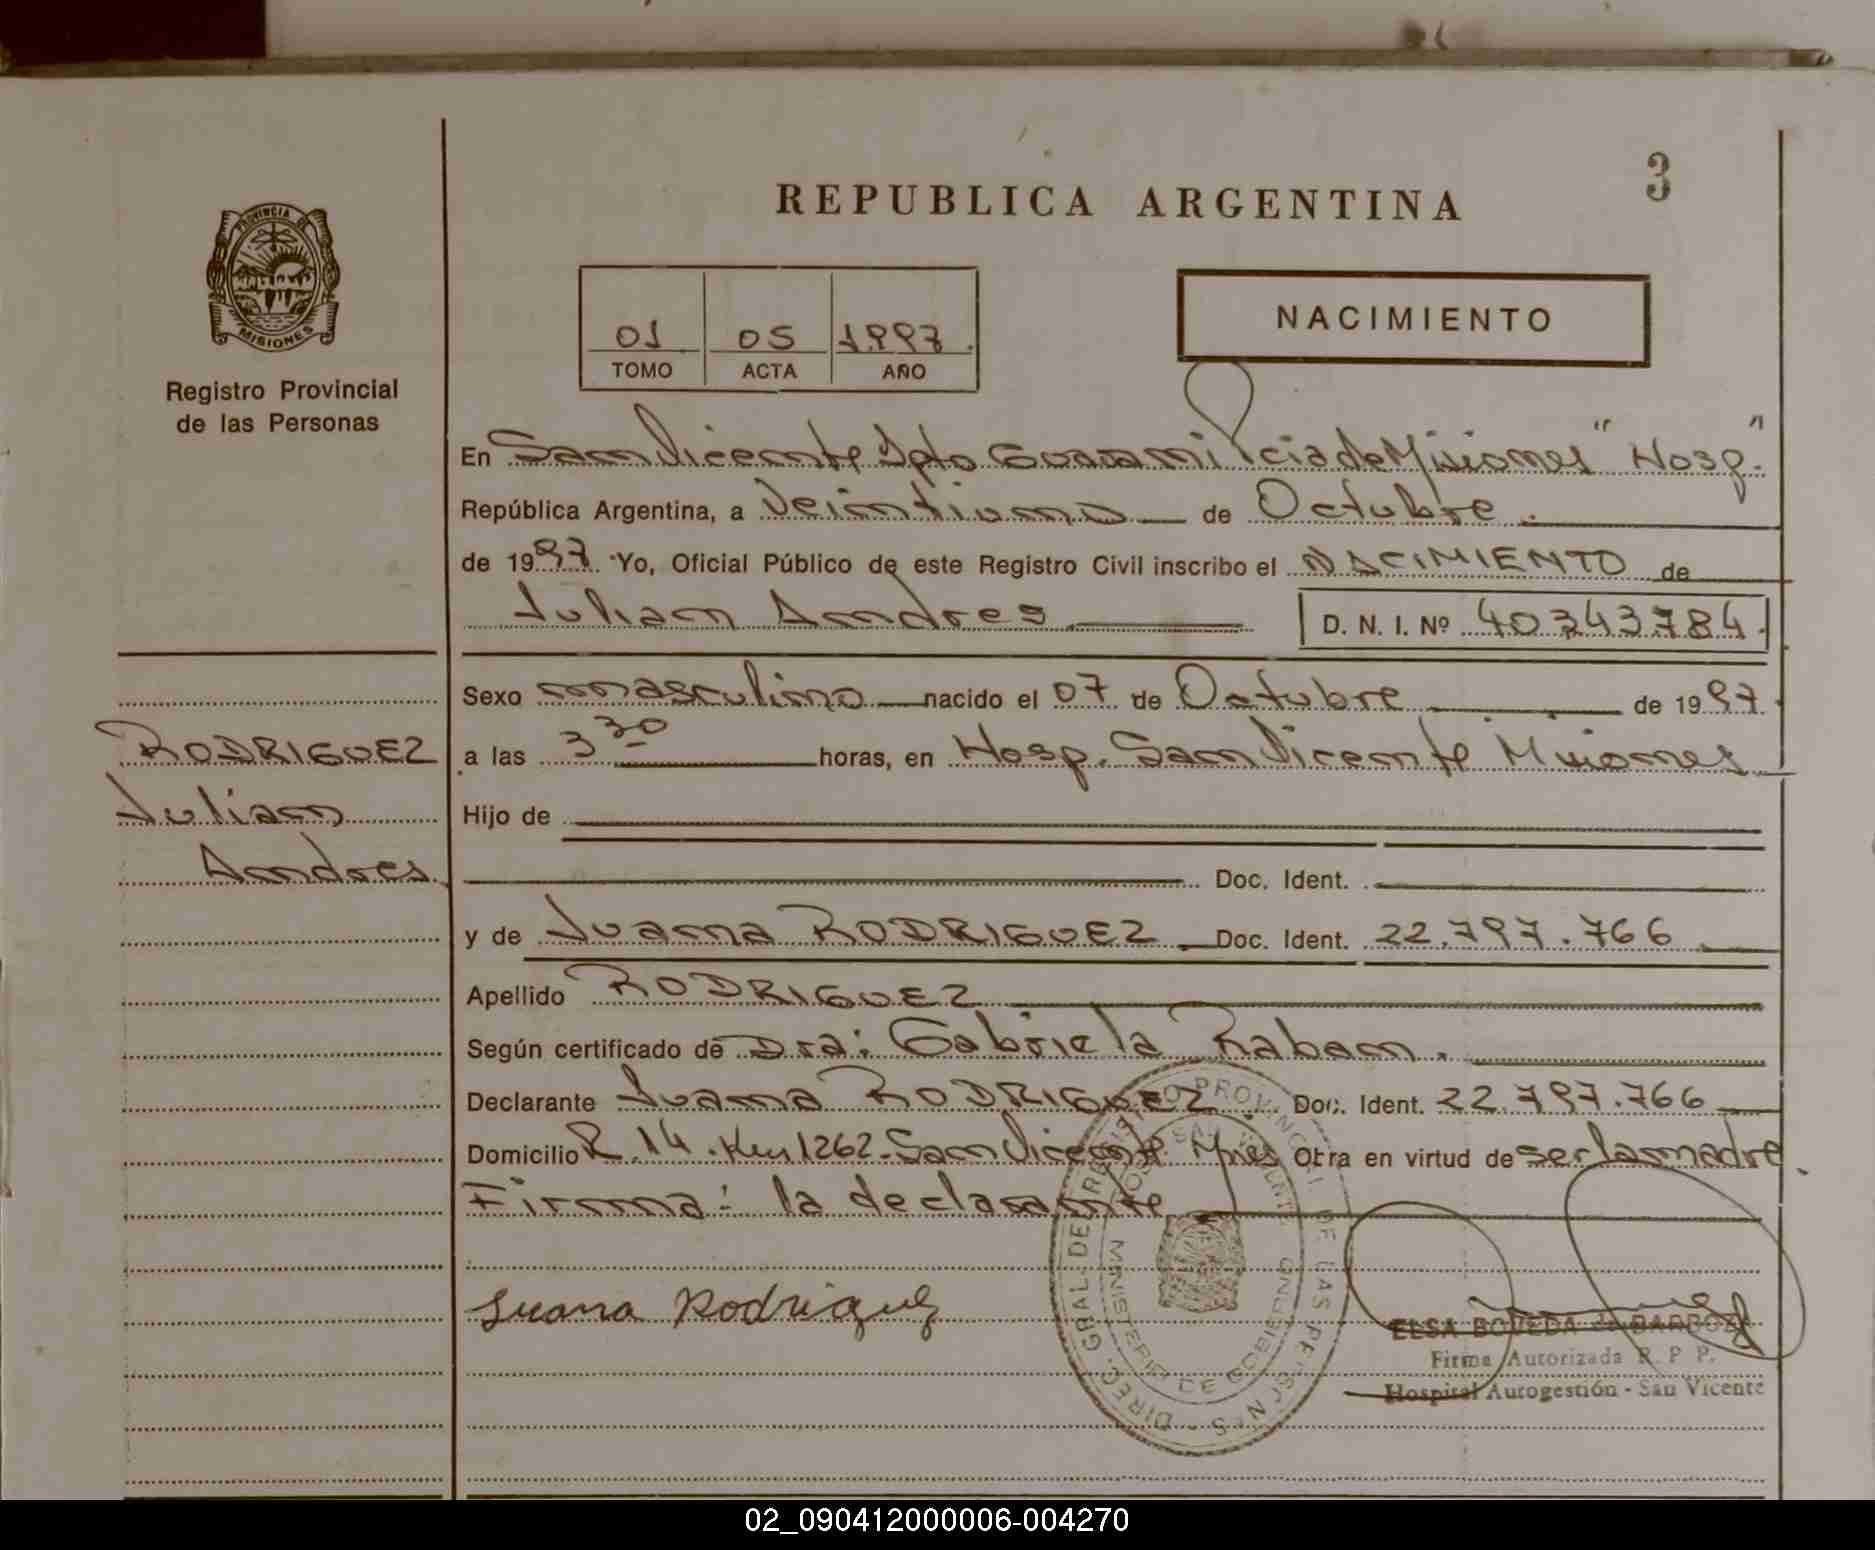 REPUBLICA ARGENTINA
3
PROVINCIA DE
MISIONES
Registro Provincial
de las Personas
01 05 1997
TOMO ACTA AÑO
NACIMIENTO
En San Vicente Dpto Guarani Pcia de Misiones "Hosp."
República Argentina, a Veintiuno de Octubre.
de 1997. Yo, Oficial Público de este Registro Civil inscribo el NACIMIENTO de
Julian Andres D. N. I. Nº 40343784.
Sexo masculino nacido el 07 de Octubre de 1997.
RODRIGUEZ
Julian
Andres
a las 3 30 horas, en Hosp. San Vicente Misiones
Hijo de
Doc. Ident.
y de Juana RODRIGUEZ. Doc. Ident. 22.797.766
Apellido RODRIGUEZ
Según certificado de Dra: Gabriela Raban.
Declarante Juana RODRIGUEZ. Doc. Ident. 22.797.766
Domicilio R.14.Km 1262-San Vicente Mnes Obra en virtud de ser la madre.
Firma: la declarante
Juana Rodriguez
DIREC. GRAL. DE REGISTRO PROVINCIAL DE LAS PERSONAS
MINISTERIO DE GOBIERNO
SAN VICENTE
ELSA BOVEDA de BARBOZA
Firma Autorizada R. P P.
Hospital Autogestión - San Vicente
02_090412000006-004270